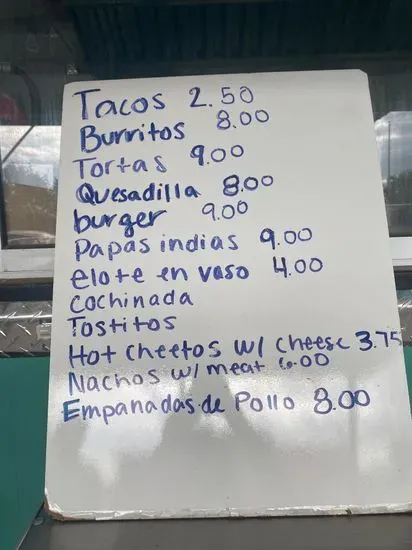 Tacos 2.50
Burritos 8.00
Tortas 9.00
Quesadilla 8.00
burger 9.00
Papas indias 9.00
elote en vaso 4.00
cochinada
Tostitos
Hot cheetos w/ cheese 3.75
Nachos w/ meat 6.00
Empanadas de Pollo 8.00